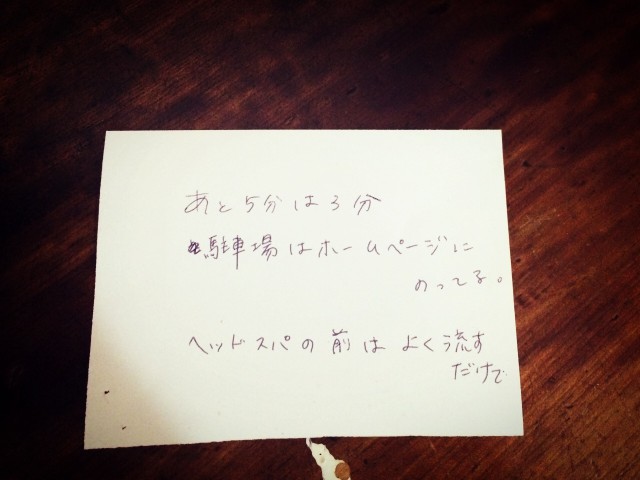 あと5分は3分
駐車場はホームページに
のってる。
ヘッドスパの前はよく流す
だけで